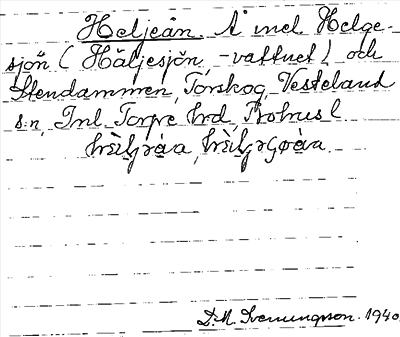 Heljeån. Å mel Helge-
sjön (Häljesjön, -vattnet) och
Stendammen, Törskog, Vesteland
s:n, Inl. Torpe hrd, Bohusl
D.M. Svenungsson. 1940